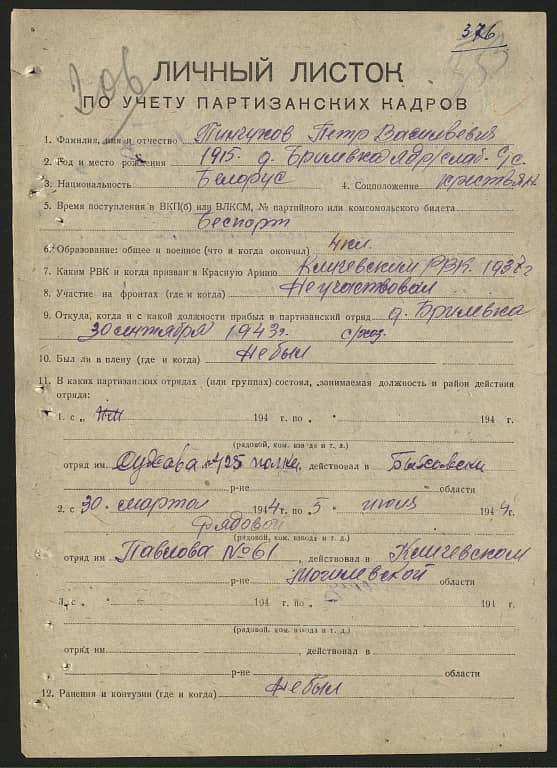 376
ЛИЧНЫЙ ЛИСТОК
ПО УЧЕТУ ПАРТИЗАНСКИХ КАДРОВ
1. Фамилия, имя и отчество Пинчуков Петр Васильевич
2. Год и место рождения 1915. д. Бримвка
3. Национальность Белорус 4. Соцположение крестьян
5. Время поступления в ВКП(б) или ВЛКСМ, № партийного или комсомольского билета
Беспарт
6. Образование: общее и военное (что и когда окончил) 4 кл.
7. Каким РВК и когда призван в Красную Армию Кличевским РВК. 1937 г
8. Участие на фронтах (где и когда) Не участвовал
9. Откуда, когда и с какой должности прибыл в партизанский отряд д. Бримвка
30 сентября 1943 г.
10. Был ли в плену (где и когда) не был
11. В каких партизанских отрядах (или группах) состоял, занимаемая должность и район действия
отряда:
1. с „ 194 г. по „ " 194 г.
(рядовой, ком. взвода и т. д.)
отряд им. 425 полка, действовал в
р-не области
2. с 30. марта 1944 г. по „ 5. июля 1944 г.
рядовой
(рядовой, ком. взвода и т. д.)
отряд им. Павлова № 61, действовал в Кличевском
р-не Могилевской области
3. с „ 194 г. по „ 194 г.
(рядовой, ком. взвода и т. д.)
отряд им. действовал в
р-не области
12. Ранения и контузии (где и когда) не был